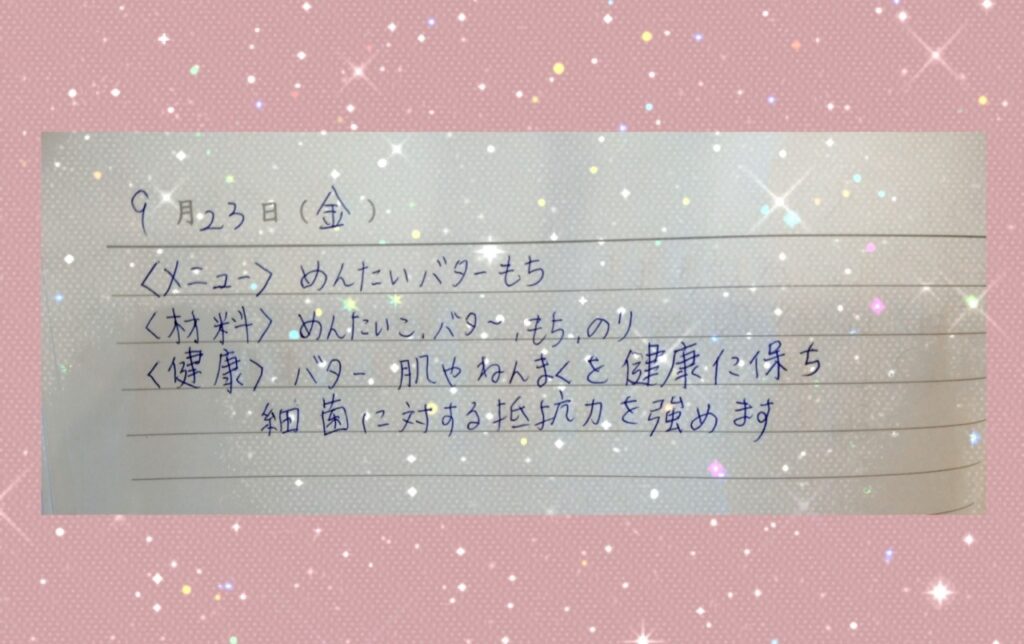 9月23日（金）
〈メニュー〉 めんたいバターもち
〈材料〉 めんたいこ、バター、もち、のり
〈健康〉 バター 肌やねんまくを健康に保ち
細菌に対する抵抗力を強めます